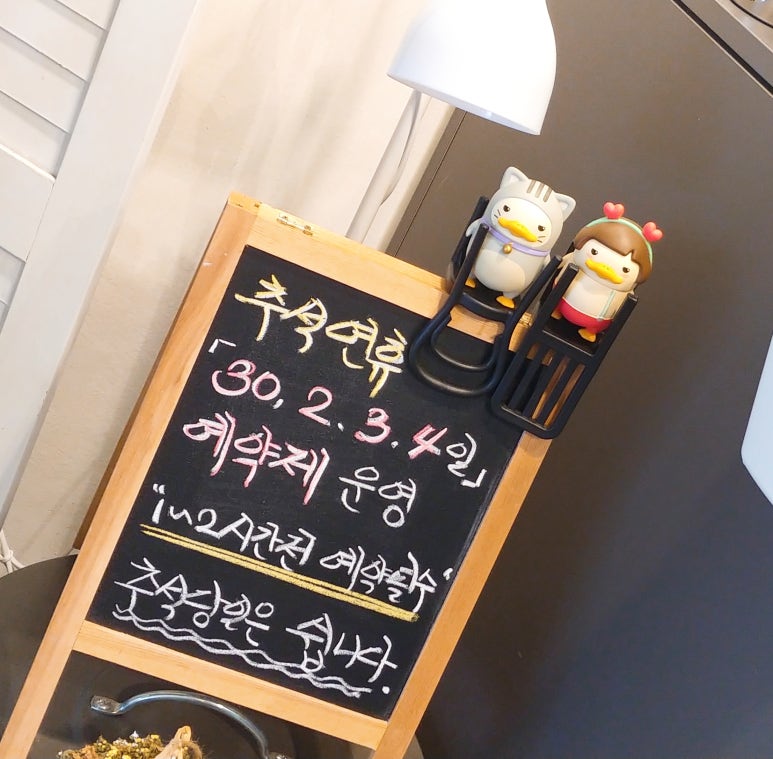 추석연휴
「30, 2. 3. 4일」
예약제 운영
"in2시간전 예약필수"
추석당일은 쉽니다.